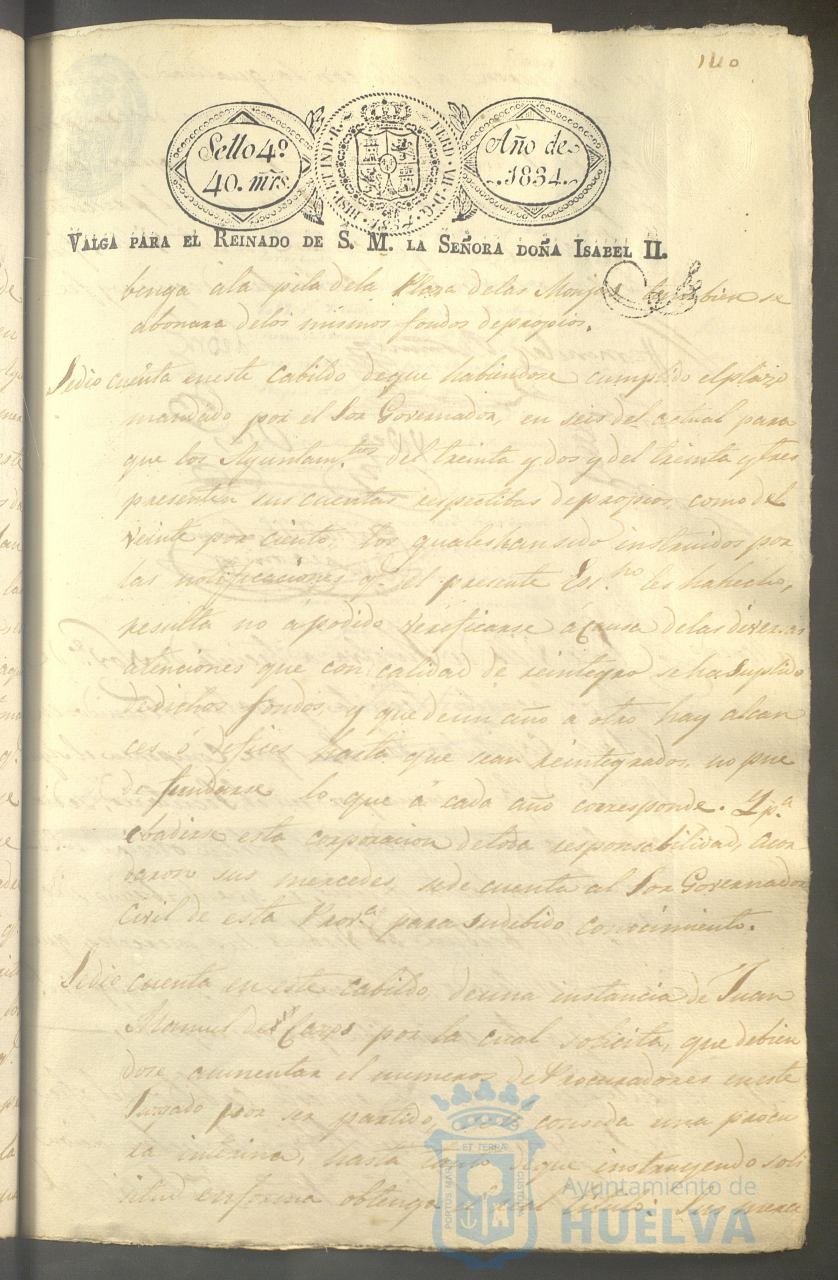 140
Sello 4º
40. mrs.
HISP. ET IND. R. FERD. VII. D. G. 1834.
Año de
1834.
VALGA PARA EL REINADO DE S. M. LA SEÑORA DOÑA ISABEL II.
benga ala pila dela Plaza delas Monjas tambien se
abonara delos mismos fondos depropios.
Sedio cuenta eneste Cabildo deque habiendose cumplido elplazo
mandado por el Sor Governador, en seis del actual para
que los Ayuntam.tos del treinta y dos y del treinta y tres
presenten sus cuentas respectibas depropios, como del
veinte por ciento, los quales han sido instruidos por
las notificaciones q.e el presente Es.no les hahecho,
resulta no apodido verificarse á causa delas diversas
atenciones que con calidad de reintegro se ha suplido
dedichos fondos, y que deun año a otro hay alcan
ces ó defices hasta que sean reintegrados, no pue
de fundarse lo que á cada año corresponde. Y p.a
ebadirse esta corporacion detoda responsabilidad, acor
daron sus mercedes, sede cuenta al Sor Governador
Civil de esta Prov.a para sudebido conocimiento.
Sedio cuenta en este cabildo, deuna instancia de Juan
Manuel de Carpo por la cual solicita, que debien
dose aumentar el numero de Procuradores eneste
Juzgado por ser partido, conseda una procu
ra interina, hasta tanto sigue instruyendo soli
citud enforma obtenga el real titulo: Sus merce
PORTUS MARIS ET TERRÆ CUSTODIA
Ayuntamiento de
HUELVA